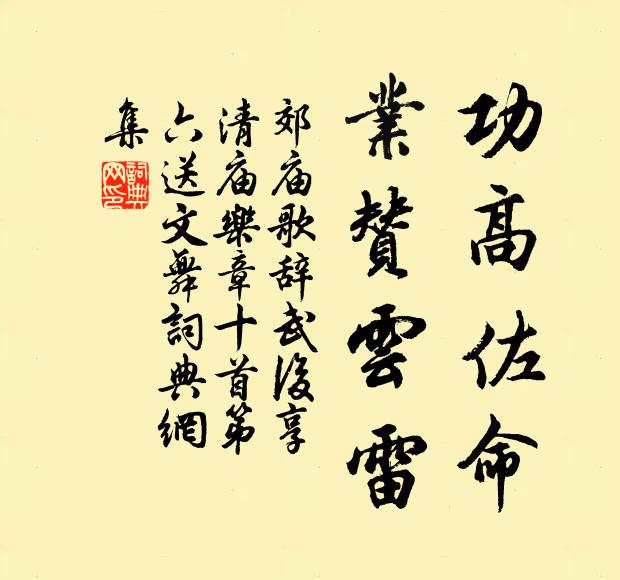 功高佐命
業贊雲雷
郊庙歌辞武後享
清庙樂章十首第
六送文舞詞典網
集
詞典網印